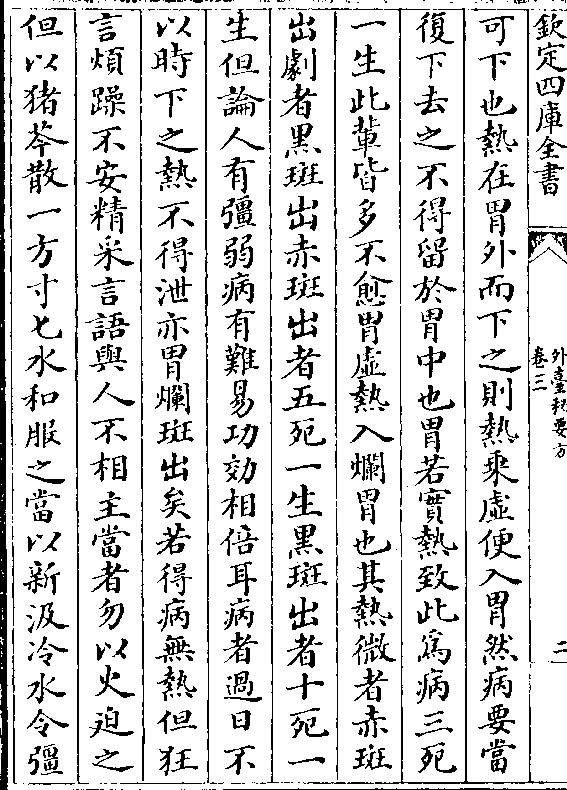 欽定四庫全書
外臺秘要方
卷三
二
可下也熱在胃外而下之則熱乘虛便入胃然病要當
復下去之不得留於胃中也胃若實熱致此為病三死
一生此輩皆多不愈胃虛熱入爛胃也其熱微者赤斑
出劇者黑斑出赤斑出者五死一生黑斑出者十死一
生但論人有彊弱病有難易功効相倍耳病者過日不
以時下之熱不得泄亦胃爛斑出矣若得病無熱但狂
言煩躁不安精采言語與人不相主當者勿以火迫之
但以猪苓散一方寸匕水和服之當以新汲冷水令彊